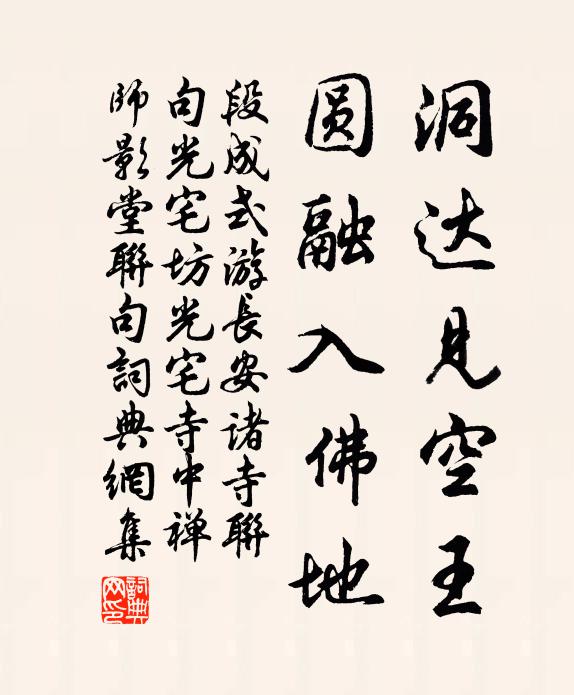 洞达見空王
圆融入佛地
段成式游長安诸寺聯
句光宅坊光宅寺中禅
師影堂聯句詞典網集
詞典網印